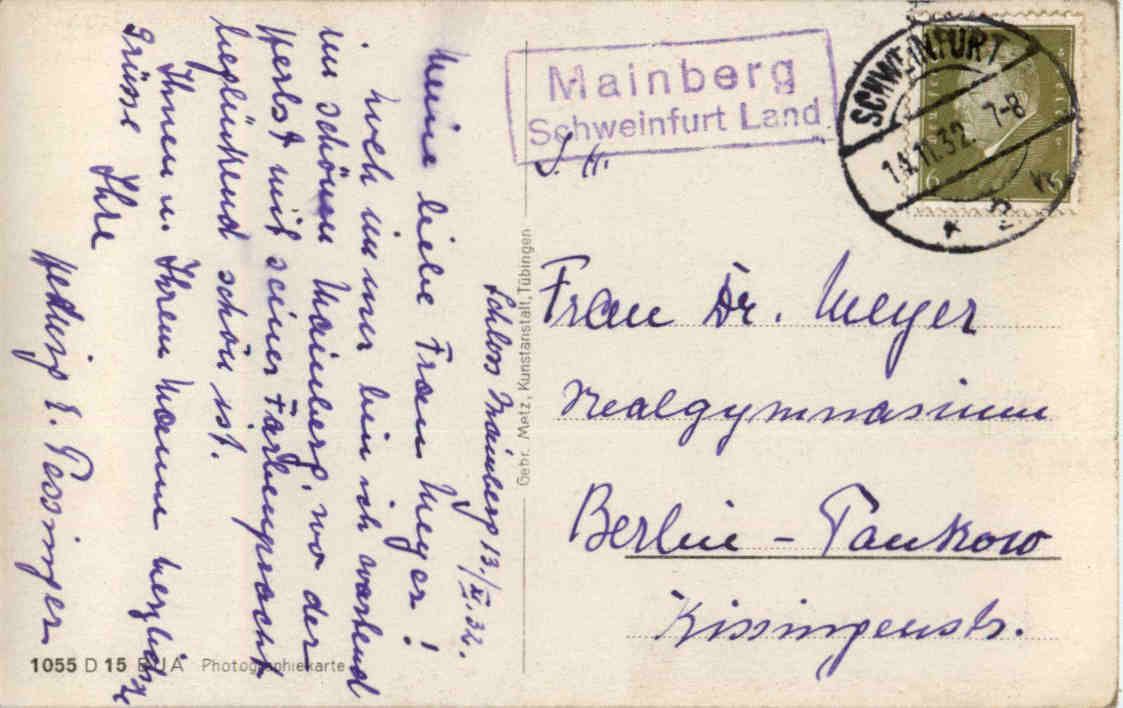 Schloss Mainberg 13./XI.32.
Meine liebe Frau Meyer!
Noch immer bin ich
im schönen Mainberg, wo der
Herbst mit seiner Farbenpracht
beglückend schön ist.
Ihnen u. Ihrem Mann herzliche
Grüsse Ihre
Hedwig
Mainberg
Schweinfurt Land
SCHWEINFURT
14.11.32. 7-8
2
6 6
Frau Dr. Meyer
Realgymnasium
Berlin - Pankow
Kissingenstr.
Gebr. Metz, Kunstanstalt, Tübingen
1055 D 15 Photographiekarte